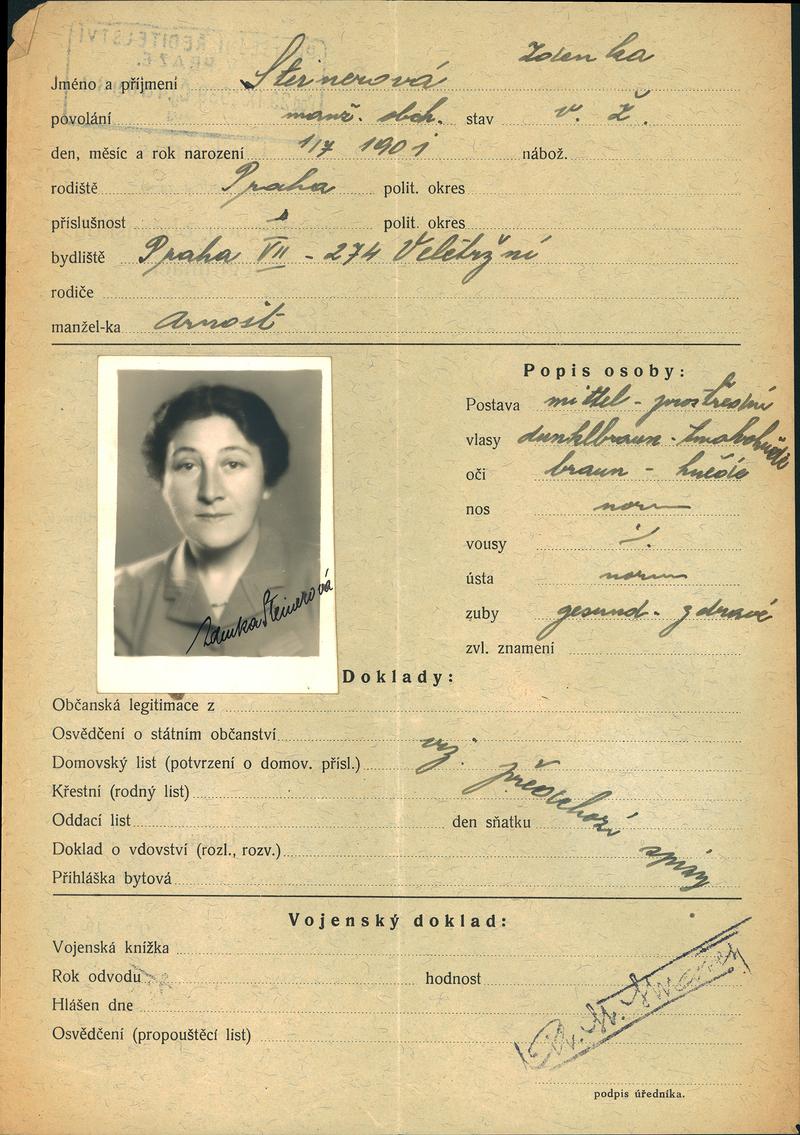 Zdenka
Jméno a příjmení Steinerová
povolání manž. obch. stav v. ž.
den, měsíc a rok narození 1/7 1901 nábož.
rodiště Praha polit. okres
příslušnost polit. okres
bydliště Praha VII - 274 Veletržní
rodiče
manžel-ka Arnošt
Popis osoby:
Postava mittel - prostřední
vlasy dunklbraun - tmavohnědé
oči braun - hnědé
nos norm
vousy ·/.
ústa norm
zuby gesund - zdravé
zvl. znamení
Zdenka Steinerová
Doklady:
Občanská legitimace z
Osvědčení o státním občanství
Domovský list (potvrzení o domov. přísl.)
Křestní (rodný list)
Oddací list den sňatku
Doklad o vdovství (rozl., rozv.)
Přihláška bytová
viz. předchozí spisy
Vojenský doklad:
Vojenská knížka
Rok odvodu hodnost
Hlášen dne
Osvědčení (propouštěcí list)
podpis úředníka.